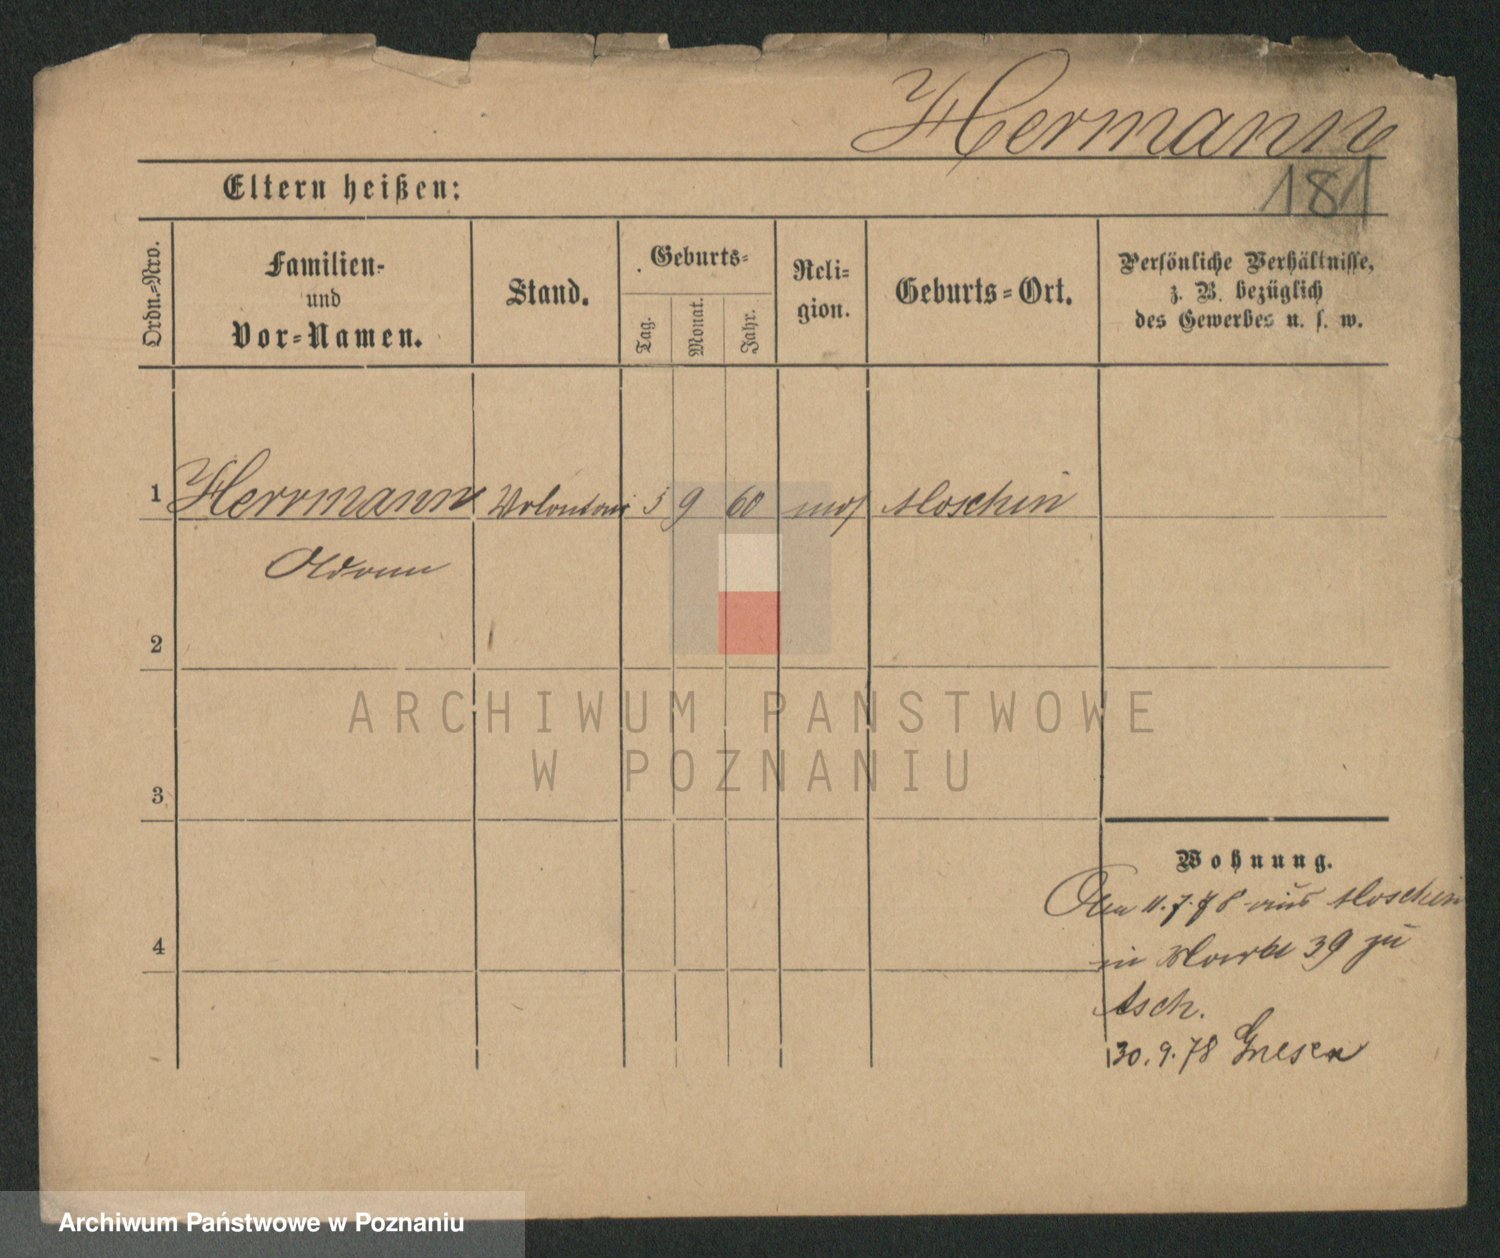 Hermann
181
Eltern heißen:
Ordn.-Nro.
Familien-
und
Vor-Namen.
Stand.
Geburts-
Tag.
Monat.
Jahr.
Reli-
gion.
Geburts-Ort.
Persönliche Verhältnisse,
z. B. bezüglich
des Gewerbes u. s. w.
1 Herrmann Volontair 5 9 60 mos Moschin
2
3
4
Wohnung.
11.7.78 aus Moschin
in Markt 39 zu
30.9.78 Gnesen
ARCHIWUM PAŃSTWOWE
W POZNANIU
Archiwum Państwowe w Poznaniu